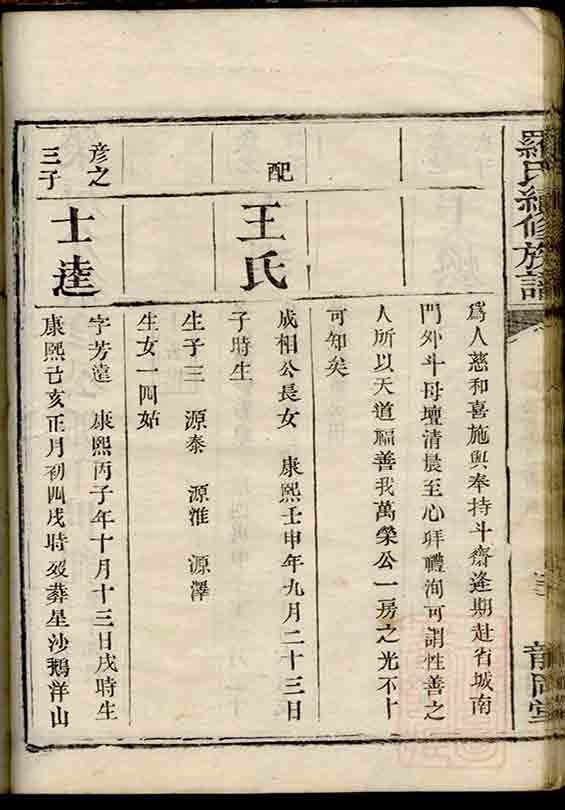 羅氏續修族譜
爲人慈和喜施與奉持斗齋逢期赴省城南
門外斗母壇清晨至心拜禮洵可謂性善之
人所以天道福善我萬榮公一房之光不卜
可知矣
配
王氏
成相公長女 康熙壬申年九月二十三日
子時生
生子三 源泰 源淮 源澤
生女一四姑
彦之
三子
士逵
字芳逵 康熙丙子年十月十三日戌時生
康熙己亥正月初四戌時歿葬星沙鵝洋山